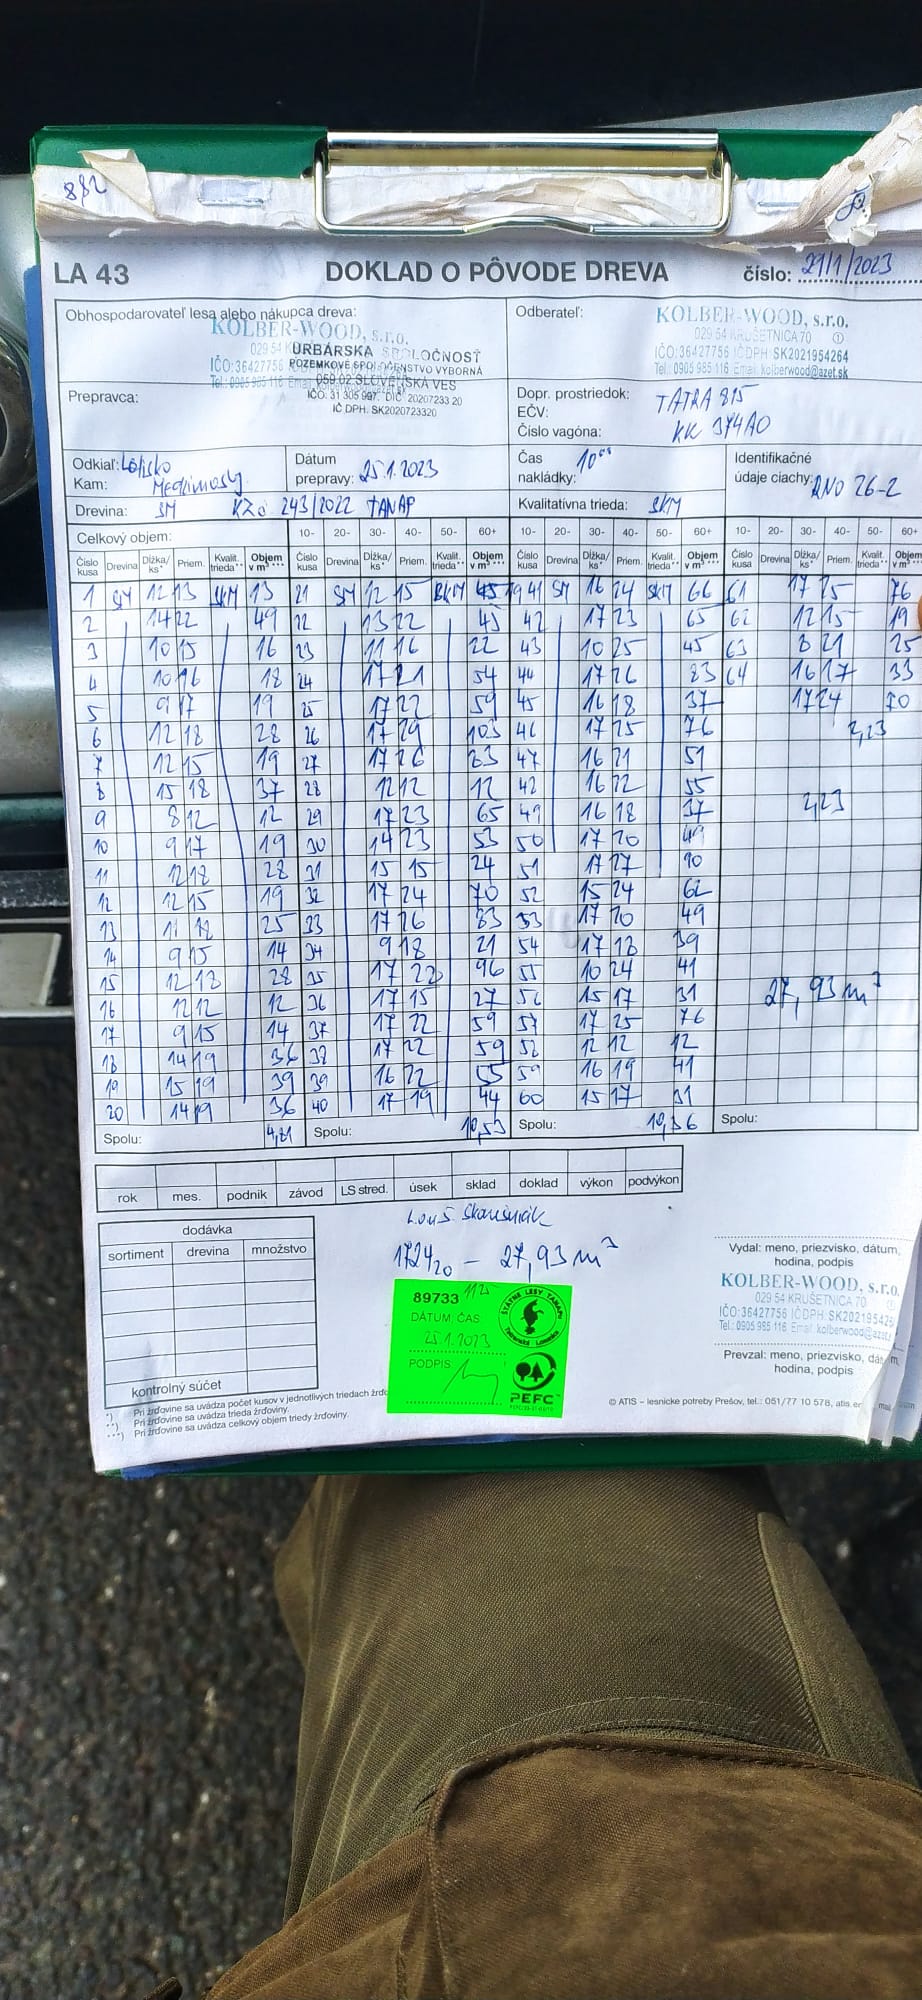 882
LA 43 DOKLAD O PÔVODE DREVA číslo: 29/1/2023
Obhospodarovateľ lesa alebo nákupca dreva:
KOLBER-WOOD, s.r.o.
URBÁRSKA SPOLOČNOSŤ
POZEMKOVÉ SPOLOČENSTVO VÝBORNÁ
059 02 SLOVENSKÁ VES
IČO: 31 305 997, DIČ 20207233 20
IČ DPH. SK2020723320
Odberateľ:
KOLBER-WOOD, s.r.o.
029 54 KRUŠETNICA 70
IČO:36427756 IČDPH SK2021954264
Tel.: 0905 985 116 Email: kolberwood@azet.sk
Prepravca:
Dopr. prostriedok: TATRA 815
EČV:
Číslo vagóna: KK 374AO
Odkiaľ:
Kam:
Dátum
prepravy: 25.1.2023
Čas
nakládky: 10°°
Identifikačné
údaje ciachy: RNO 26-2
Drevina: SM 243/2022 TANAP
Kvalitatívna trieda: SKM
Celkový objem: 10- 20- 30- 40- 50- 60+ 10- 20- 30- 40- 50- 60+ 10- 20- 30- 40- 50- 60+
Číslo kusa Drevina Dĺžka/ks* Priem. Kvalit. trieda** Objem v m³ *** Číslo kusa Drevina Dĺžka/ks* Priem. Kvalit. trieda** Objem v m³ *** Číslo kusa Drevina Dĺžka/ks* Priem. Kvalit. trieda** Objem v m³ *** Číslo kusa Drevina Dĺžka/ks* Priem. Kvalit. trieda** Objem v m³ ***
1 SM 12 13 SKM 13 21 SM 12 15 SKM 41 SM 16 24 SKM 66 61 17 25 76
2 14 22 49 22 13 22 45 42 17 23 65 62 12 15 19
3 10 15 16 23 11 16 22 43 10 25 45 63 8 21 25
4 10 16 18 24 17 21 54 44 17 26 83 64 16 17 33
5 9 17 19 25 17 22 59 45 16 18 37 17 24 70
6 12 18 28 26 17 29 103 46 17 25 76 2,23
7 12 15 19 27 17 26 83 47 16 21 51
8 15 18 37 28 12 12 12 48 16 22 55
9 8 12 12 29 17 23 65 49 16 18 37 2,23
10 9 17 19 30 14 23 53 50 17 20 49
11 12 18 28 31 15 15 24 51 17 27 90
12 12 15 19 32 17 24 70 52 15 24 62
13 11 25 33 17 26 83 53 17 20 49
14 9 15 14 34 9 18 21 54 17 18 39
15 12 18 28 35 17 96 55 10 24 41
16 12 12 12 36 17 15 27 56 15 17 31 27,93 m³
17 9 15 14 37 17 22 59 57 17 25 76
18 14 19 36 38 17 22 59 58 12 12 12
19 15 19 39 39 16 22 55 59 16 19 41
20 14 19 36 40 17 19 44 60 15 17 31
Spolu: 4,81 Spolu: 10,53 Spolu: 10,36 Spolu:
rok mes. podnik závod LS stred. úsek sklad doklad výkon podvýkon
dodávka
sortiment drevina množstvo
kontrolný súčet
1724/20 – 27,93 m³
89733 11 25
DÁTUM ČAS
25.1.2023
PODPIS
ŠTÁTNE LESY TANAPU
Tatranská Lomnica
PEFC
Vydal: meno, priezvisko, dátum,
hodina, podpis
KOLBER-WOOD, s.r.o.
029 54 KRUŠETNICA 70
IČO:36427756 IČDPH SK20219542
Tel.: 0905 985 116 Email: kolberwood@azet
Prevzal: meno, priezvisko,
hodina, podpis
*) Pri žrďovine sa uvádza počet kusov v jednotlivých triedach
**) Pri žrďovine sa uvádza trieda žrďoviny.
***) Pri žrďovine sa uvádza celkový objem triedy žrďoviny.
© ATIS – lesnícke potreby Prešov, tel.: 051/77 10 578,